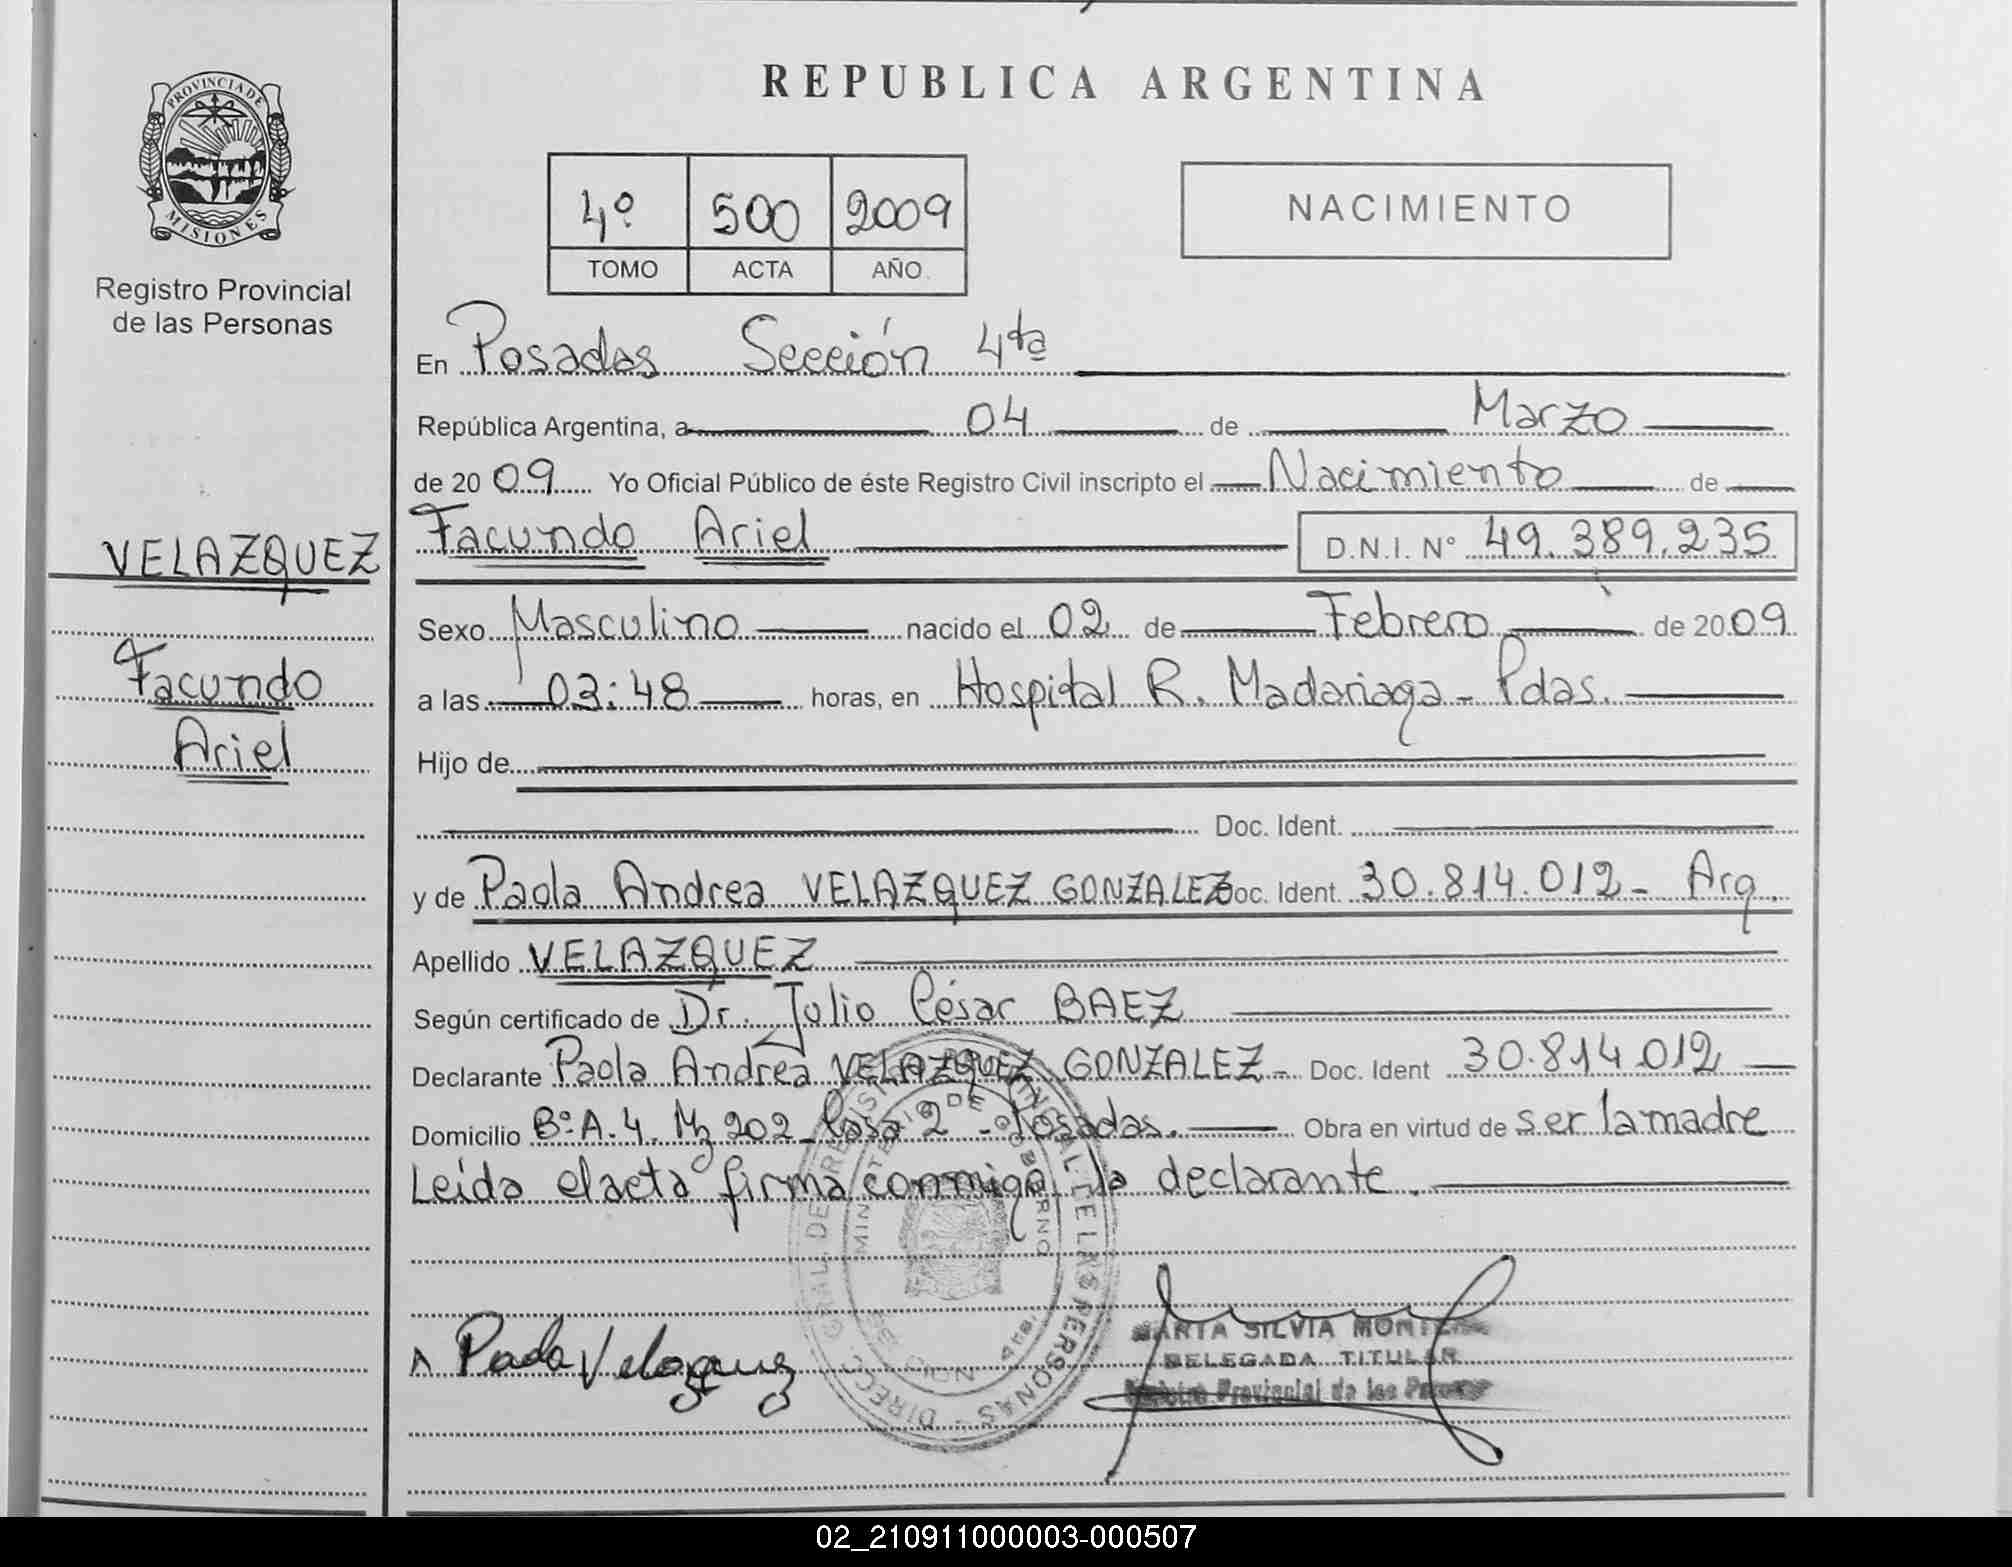 PROVINCIA DE
MISIONES
Registro Provincial
de las Personas
VELAZQUEZ
Facundo
Ariel
REPUBLICA ARGENTINA
4º 500 2009
TOMO ACTA AÑO
NACIMIENTO
En Posadas Sección 4ta
República Argentina, a 04 de Marzo
de 2009 Yo Oficial Público de éste Registro Civil inscripto el Nacimiento de
Facundo Ariel D.N.I. Nº 49.389.235
Sexo Masculino nacido el 02 de Febrero de 2009
a las 03:48 horas, en Hospital R. Madariaga - Pdas.
Hijo de
Doc. Ident.
y de Paola Andrea VELAZQUEZ GONZALEZ Doc. Ident. 30.814.012 - Arg.
Apellido VELAZQUEZ
Según certificado de Dr. Julio César BAEZ
Declarante Paola Andrea VELAZQUEZ GONZALEZ - Doc. Ident 30.814.012
Domicilio Bº A.4. Mz 202 - Casa 2 - Posadas. Obra en virtud de ser la madre
Leída el acta firma conmigo la declarante.
MINISTERIO DE GOBIERNO
Paola Velazquez
MARIA SILVIA
DELEGADA TITULAR
Registro Provincial de las
02_210911000003-000507